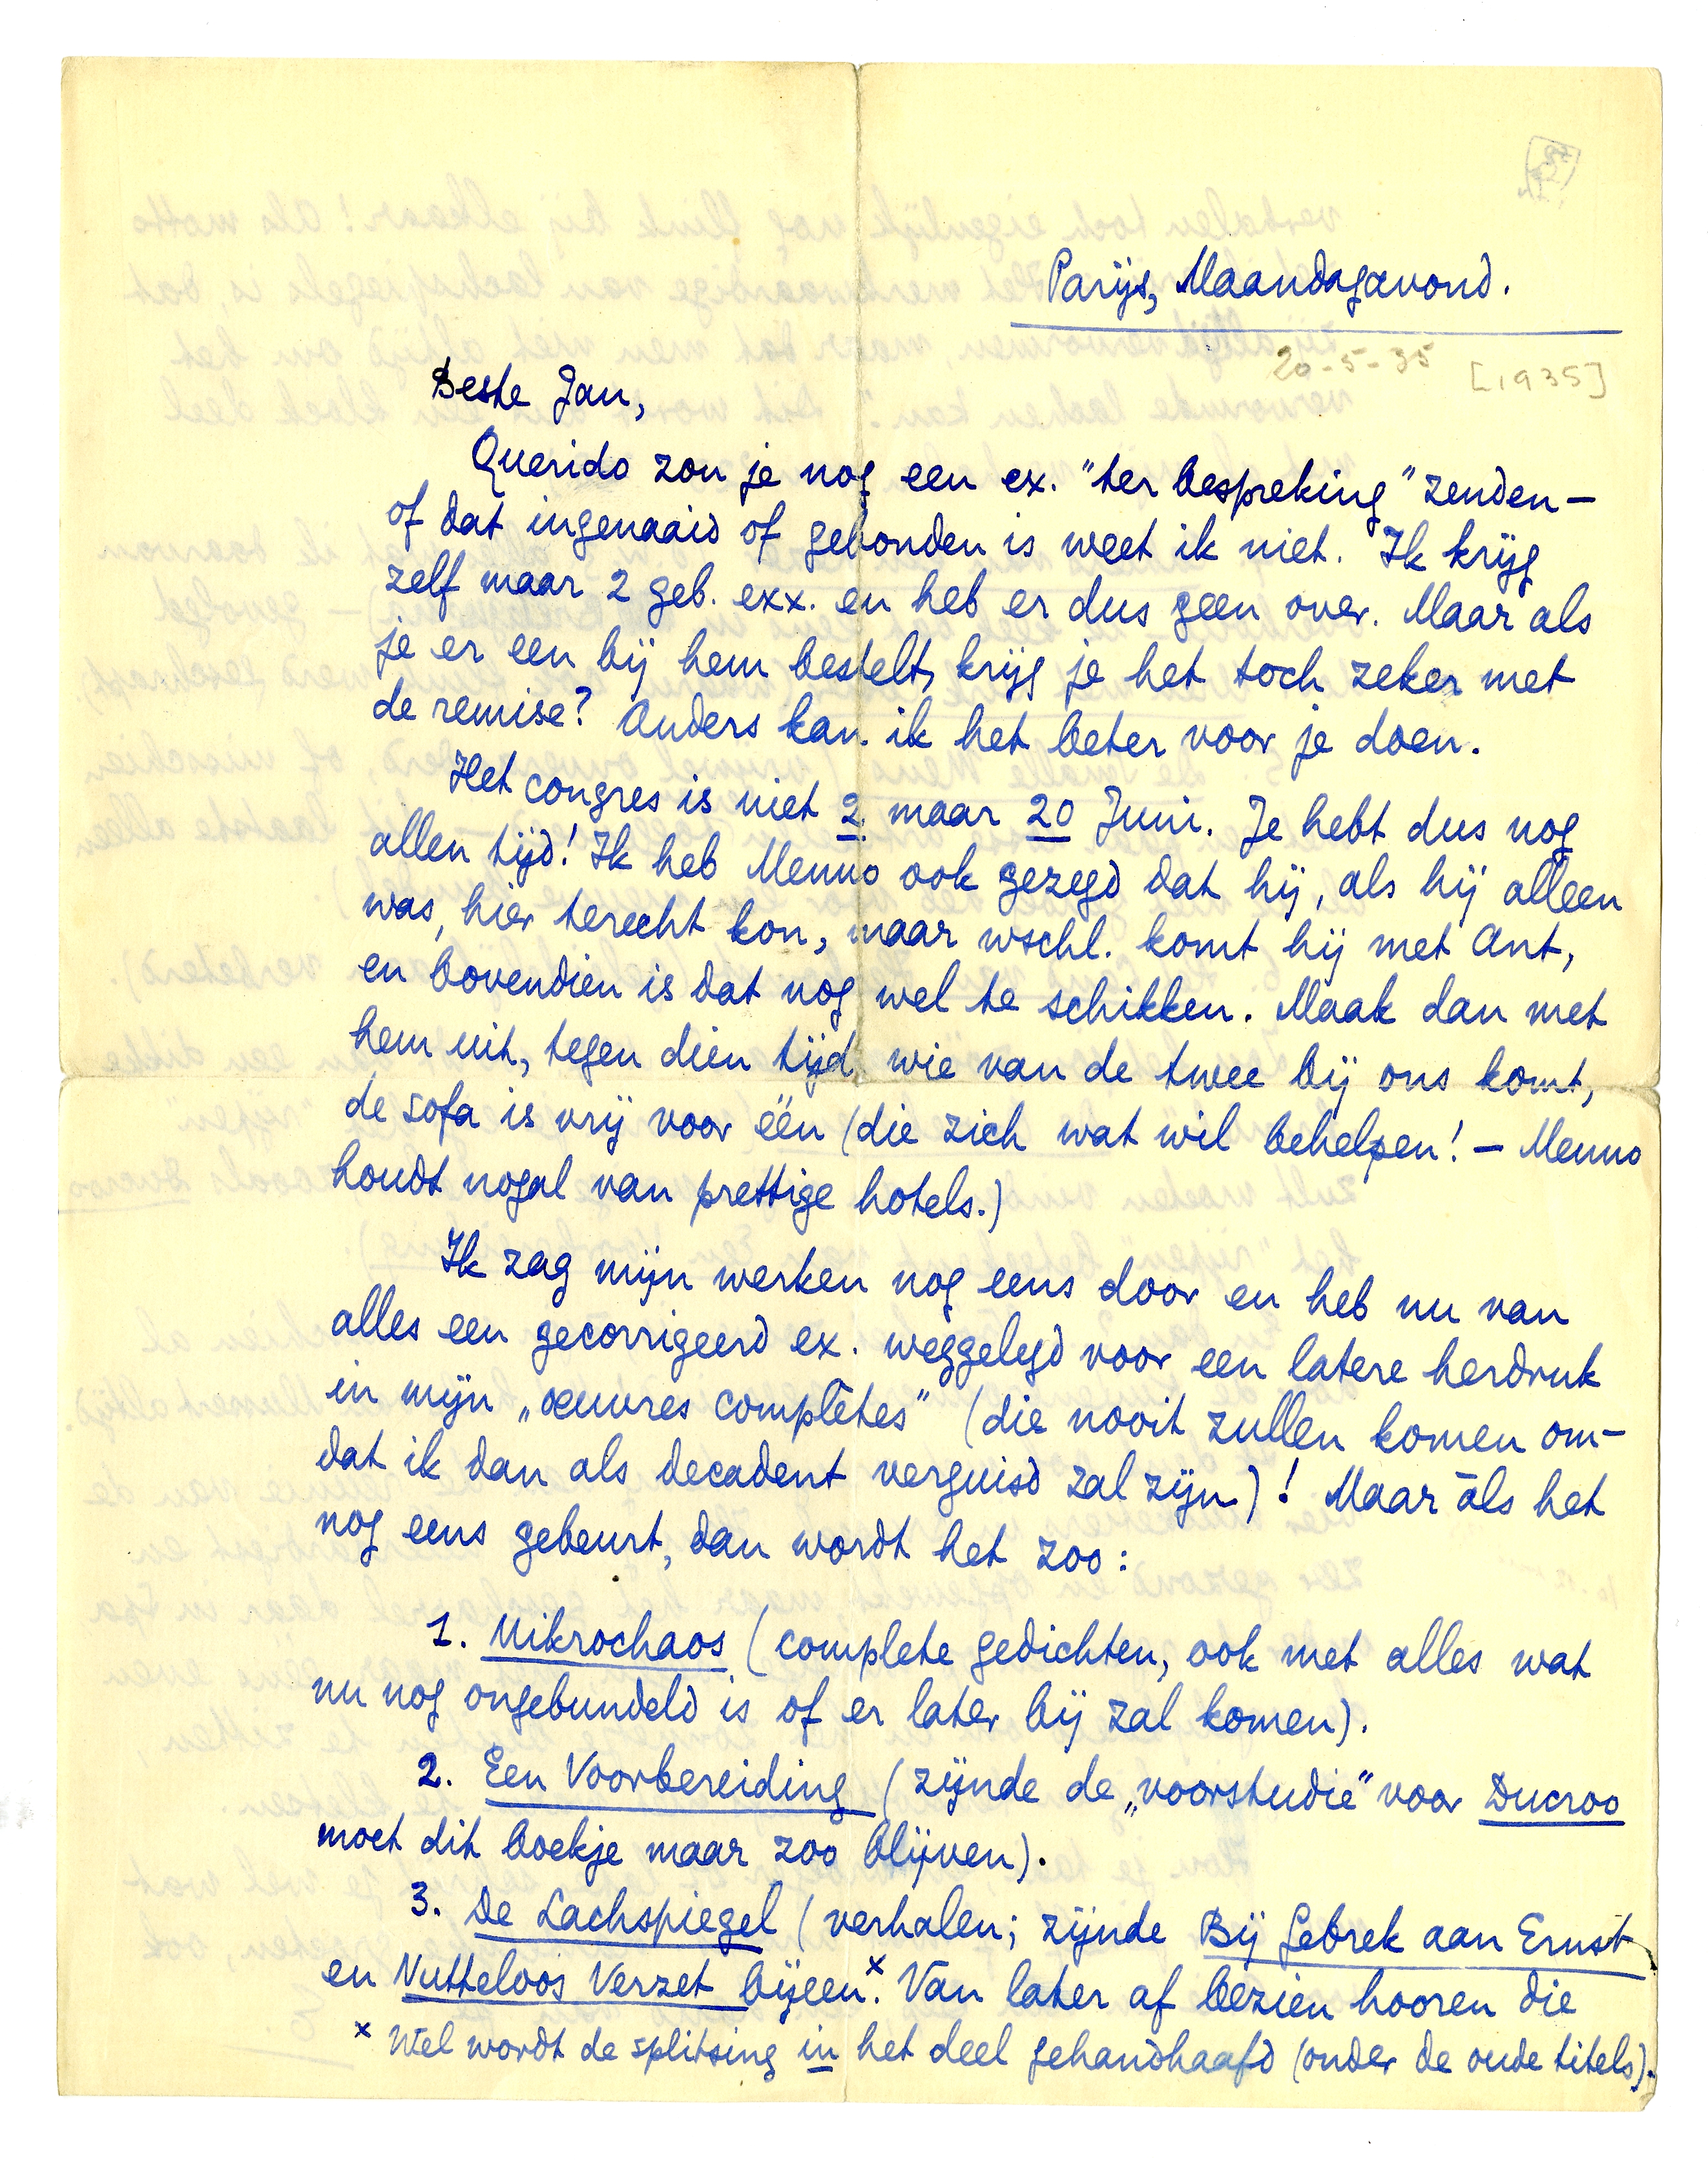 Parijs, Maandagavond.
20-5-35 [1935]
Beste Jan,
Querido zou je nog een ex. "ter bespreking" zenden —
of dat ingenaaid of gebonden is weet ik niet. Ik krijg
zelf maar 2 geb. exx. en heb er dus geen over. Maar als
je er een bij hem bestelt, krijg je het toch zeker met
de remise? Anders kan ik het beter voor je doen.
Het congres is niet 2 maar 20 Juni. Je hebt dus nog
allen tijd! Ik heb Menno ook gezegd dat hij, als hij alleen
was, hier terecht kon, maar wschl. komt hij met Ant,
en bovendien is dat nog wel te schikken. Maak dan met
hem uit, tegen dien tijd, wie van de twee bij ons komt,
de sofa is vrij voor één (die zich wat wil behelpen! — Menno
houdt nogal van prettige hotels.)
Ik zag mijn werken nog eens door en heb nu van
alles een gecorrigeerd ex. weggelegd voor een latere herdruk
in mijn „œuvres complètes" (die nooit zullen komen om-
dat ik dan als decadent verguisd zal zijn)! Maar àls het
nog eens gebeurt, dan wordt het zoo:
1. Mikrochaos (complete gedichten, ook met alles wat
nu nog ongebundeld is of er later bij zal komen).
2. Een Voorbereiding (zijnde de „voorstudie" voor Ducroo
moet dit boekje maar zoo blijven).
3. De Lachspiegel (verhalen; zijnde Bij Gebrek aan Ernst
en Nutteloos Verzet bijeen.x Van later af bezien hooren die
x Wel wordt de splitsing in het deel gehandhaafd (onder de oude titels).